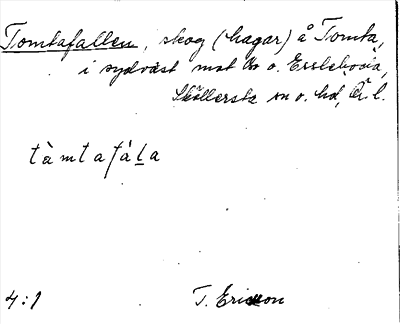 Tomtafallen, skog (hagar) å Tomta,
i sydväst mot Ko o.
Sköllersta sn o. hd, Ö. l.
tàmtafáļa
4:1 T. Ericson